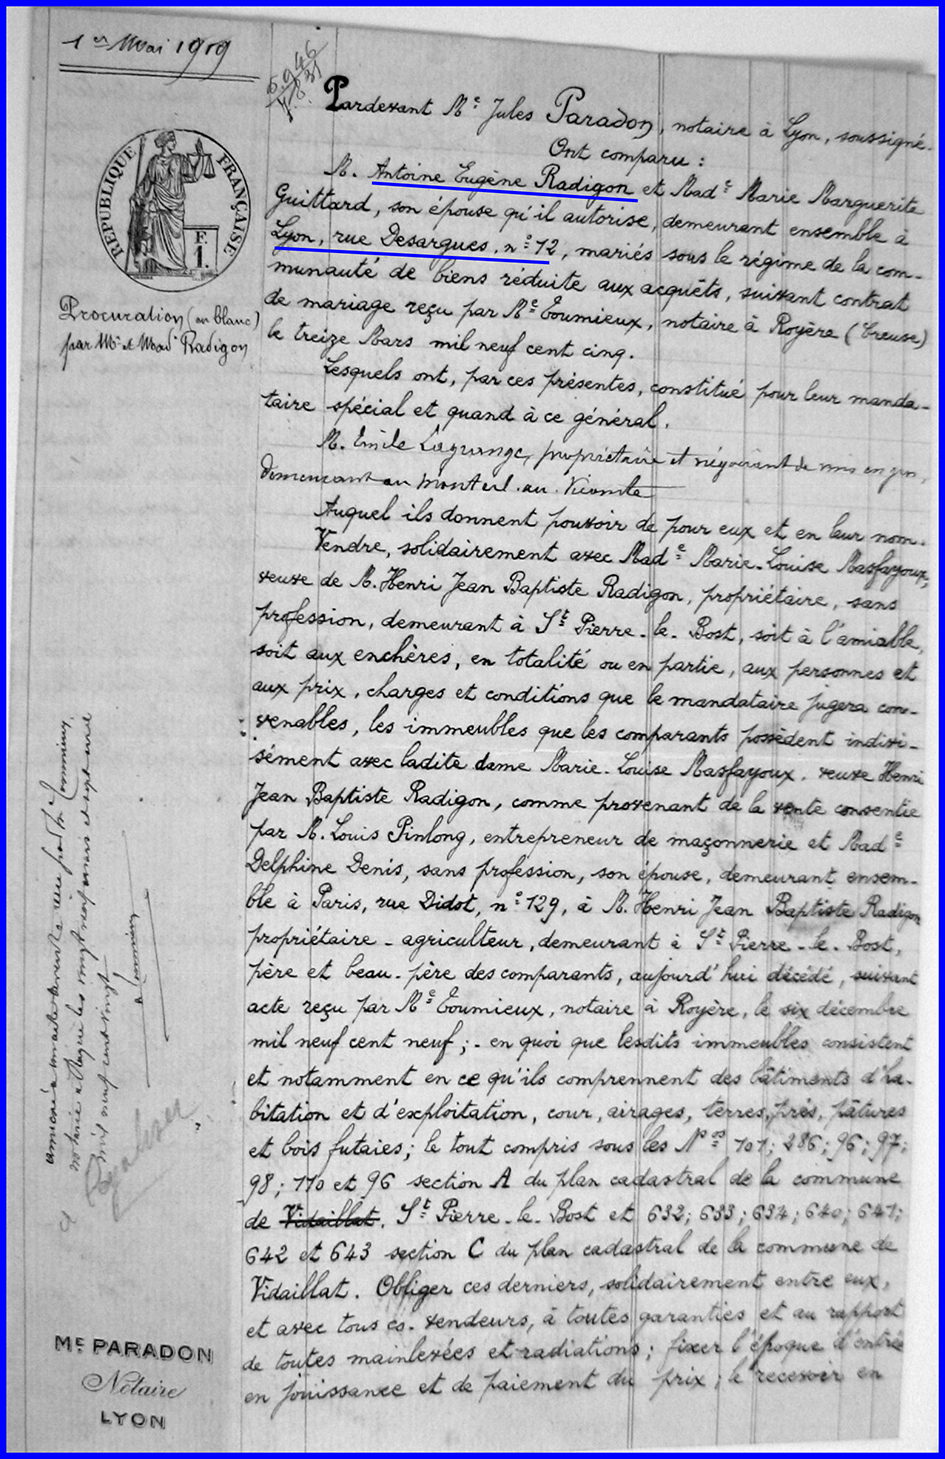 1er Mai 1919
Pardevant Me Jules Paradon, notaire à Lyon, soussigné.
Ont comparu :
M. Antoine Eugène Radigon et Made Marie Marguerite
Guittard, son épouse qu'il autorise, demeurant ensemble à
Lyon, rue Desargues, no 12, mariés sous le régime de la com-
munauté de biens réduite aux acquêts, suivant contrat
de mariage reçu par Me Toumieux, notaire à Royère (Creuse)
le treize Mars mil neuf cent cinq.
Lesquels ont, par ces présentes, constitué pour leur manda-
taire spécial et quand à ce général.
M. Emile Lagrange, propriétaire et négociant de vins en gros,
demeurant au Monteil-au-Vicomte
Auquel ils donnent pouvoir de pour eux et en leur nom.
Vendre, solidairement avec Made Marie-Louise Masfayoux,
veuve de M. Henri Jean Baptiste Radigon, propriétaire, sans
profession, demeurant à St Pierre-le-Bost, soit à l'amiable,
soit aux enchères, en totalité ou en partie, aux personnes et
aux prix, charges et conditions que le mandataire jugera con-
venables, les immeubles que les comparants possèdent indivi-
sément avec ladite dame Marie-Louise Masfayoux, veuve Henri
Jean Baptiste Radigon, comme provenant de la vente consentie
par M. Louis Pinlong, entrepreneur de maçonnerie et Made
Delphine Denis, sans profession, son épouse, demeurant ensem-
ble à Paris, rue Didot, no 129, à M. Henri Jean Baptiste Radigon
propriétaire-agriculteur, demeurant à St Pierre-le-Bost,
père et beau-père des comparants, aujourd'hui décédé, suivant
acte reçu par Me Toumieux, notaire à Royère, le six décembre
mil neuf cent neuf ; - en quoi que lesdits immeubles consistent
et notamment en ce qu'ils comprennent des bâtiments d'ha-
bitation et d'exploitation, cour, airages, terres, prés, pâtures
et bois futaies ; le tout compris sous les Nos 101 ; 286 ; 96 ; 97 ;
98 ; 110 et 96 section A du plan cadastral de la commune
de Vidaillat. St Pierre-le-Bost et 632 ; 633 ; 634 ; 640 ; 641 ;
642 et 643 section C du plan cadastral de la commune de
Vidaillat. Obliger ces derniers, solidairement entre eux,
et avec tous co-vendeurs, à toutes garanties et au rapport
de toutes mainlevées et radiations ; fixer l'époque d'entrée
en jouissance et de paiement du prix ; le recevoir en
RÉPUBLIQUE FRANÇAISE
F.
1.
Procuration (en blanc)
par Mr et Made Radigon
Me PARADON
Notaire
LYON